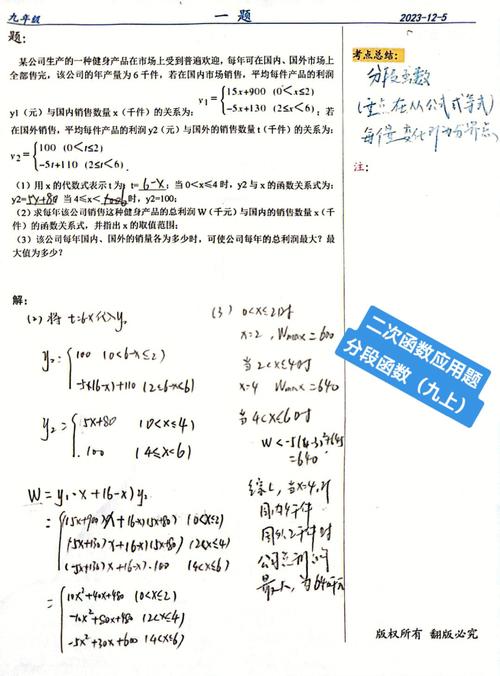 九年级
一 题
2023-12-5
题:
某公司生产的一种健身产品在市场上受到普遍欢迎,每年可在国内、国外市场上
全部售完,该公司的年产量为 6 千件,若在国内市场销售,平均每件产品的利润
y1(元)与国内销售数量 x(千件)的关系为: y₁={15x+900 (0<x≤2)
-5x+130 (2≤x<6); 若
在国外销售,平均每件产品的利润 y2(元)与国外的销售数量 t(千件)的关系为:
y₂={100 (0<t≤2)
-5t+110 (2≤t<6).
(1)用 x 的代数式表示 t 为:t= 6-x ; 当 0<x≤4 时,y2 与 x 的函数关系式为:
y2= 5x+80 当 4≤x< 6 时,y2=100;
(2)求每年该公司销售这种健身产品的总利润 W(千元)与国内的销售数量 x(千
件)的函数关系式,并指出 x 的取值范围;
(3)该公司每年国内、国外的销量各为多少时,可使公司每年的总利润最大?最
大值为多少?
考点总结:
分段函数
(重点在从公式或等式)
注:
解:
(2) 将 t=6-x代入y₂
y₂={100 (0<6-x≤2)
-5(6-x)+110 (2≤6-x<6)
y₂={5x+80 (0<x≤4)
100 (4≤x<6)
W=y₁·x+(6-x)y₂
={(15x+900)x+(6-x)(5x+80) (0<x≤2)
(-5x+130)x+(6-x)(5x+80) (2<x≤4)
(-5x+130)x+(6-x)·100 (4<x<6)
={10x²+40x+480 (0<x≤2)
-10x²+80x+480 (2<x≤4)
-5x²+30x+600 (4<x<6)
(3) 0<x≤2时
x=2, Wmax=600
当2<x≤4时
x=4 Wmax=640
当4<x≤6时
W<-5(4-3)²+645
=640
综上,当x=4时
国内4千件
国外2千件时
公司总利润
最大,为640千元
二次函数应用题
分段函数(九上)
版权所有 翻版必究